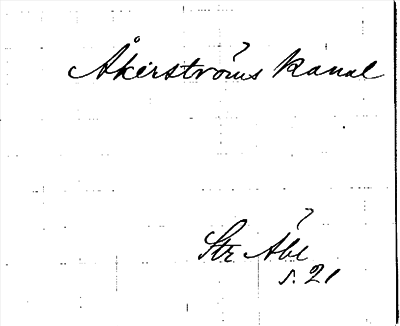 Åkerströms Kanal
Str Åbl
s. 21